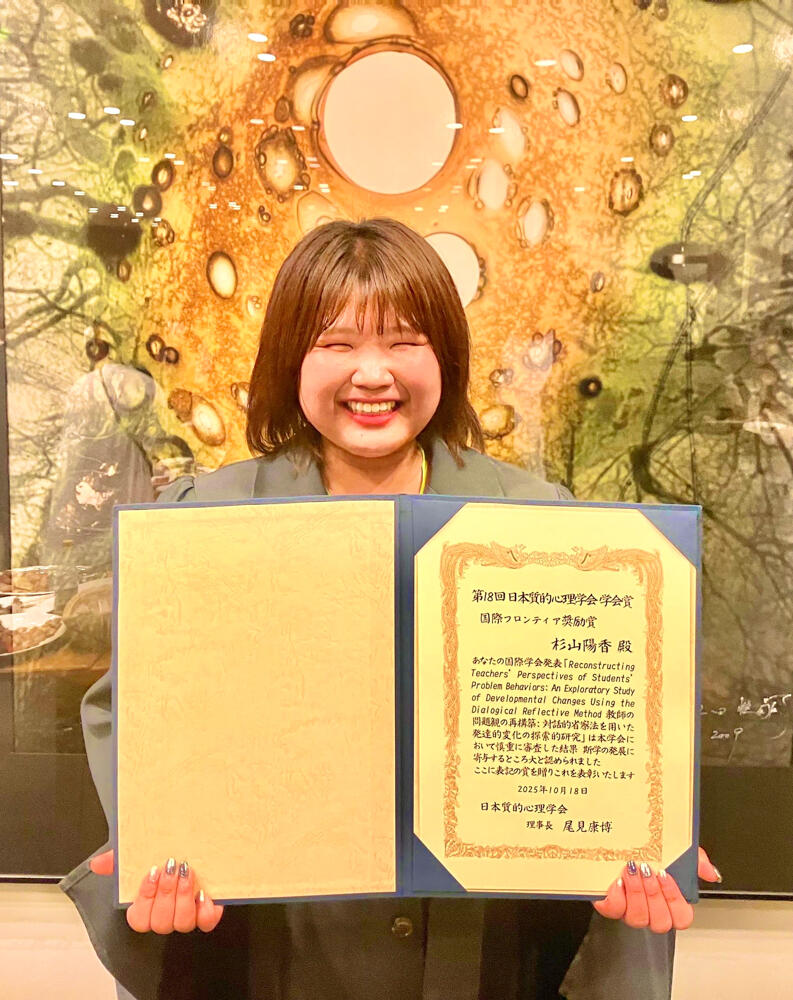 第18回 日本質的心理学会 学会賞
国際フロンティア奨励賞
杉山陽香 殿
あなたの国際学会発表「Reconstructing
Teachers' Perspectives of Students'
Problem Behaviors: An Exploratory Study
of Developmental Changes Using the
Dialogical Reflective Method 教師の
問題観の再構築: 対話的省察法を用いた
発達的変化の探索的研究」は本学会に
おいて慎重に審査した結果 斯学の発展に
寄与するところ大と認められました
ここに表記の賞を贈りこれを表彰いたします
2025年10月18日
日本質的心理学会
理事長 尾見康博
2009